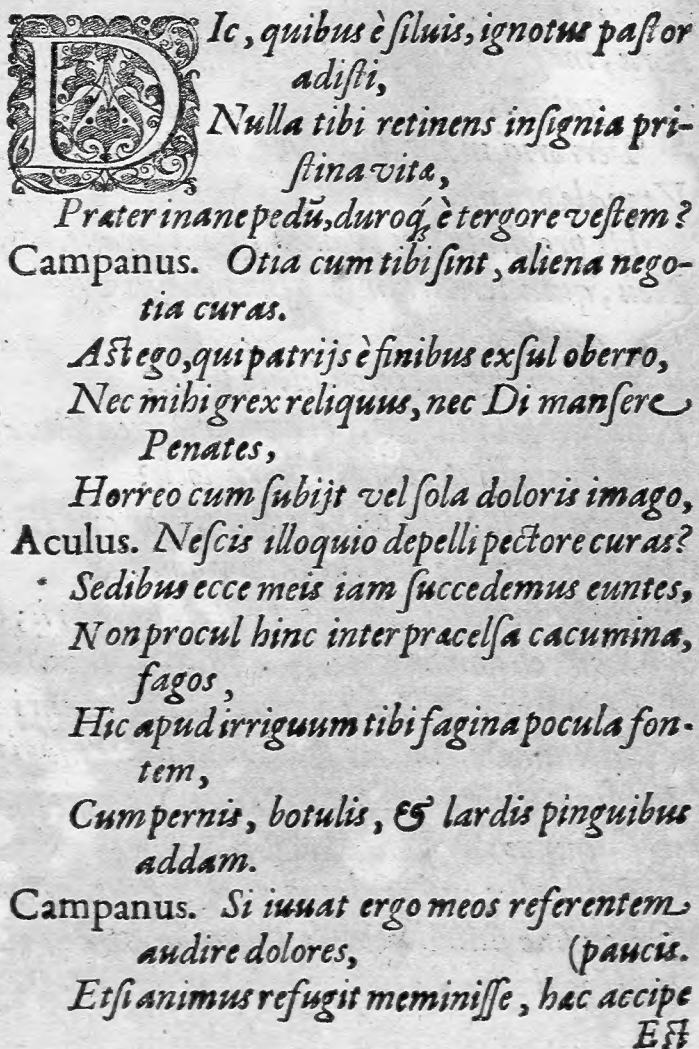 DIc, quibus è ſiluis, ignotus paſtor
adiſti,
Nulla tibi retinens inſignia pri-
ſtina vitæ,
Præter inane pedū, duroq́; è tergore veſtem?
Campanus. Otia cum tibi ſint, aliena nego-
tia curas.
Aſt ego, qui patrijs è finibus exſul oberro,
Nec mihi grex reliquus, nec Di manſere
Penates,
Horreo cum ſubijt vel ſola doloris imago,
Aculus. Neſcis illoquio depelli pectore curas?
Sedibus ecce meis iam ſuccedemus euntes,
Non procul hinc inter præcelſa cacumina,
fagos,
Hic apud irriguum tibi fagina pocula fon-
tem,
Cum pernis, botulis, & lardis pinguibus
addam.
Campanus. Si iuuat ergo meos referentem
audire dolores, (paucis.
Etſi animus refugit meminiſſe, hæc accipe
Eſt